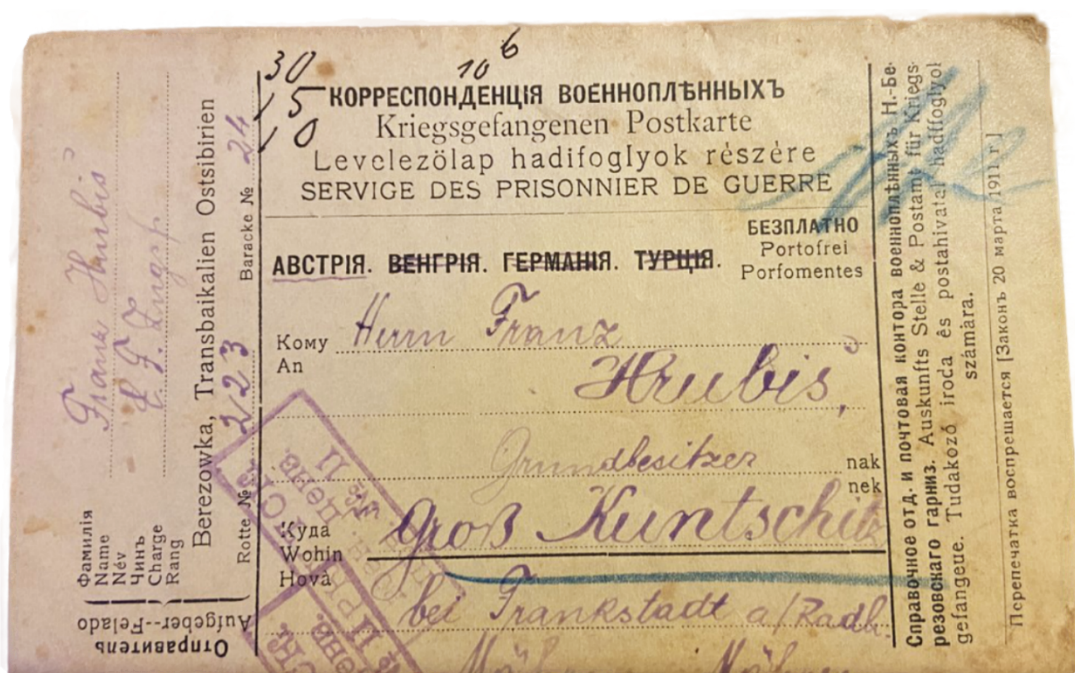 30
15
10
10 6
КОРРЕСПОНДЕНЦІЯ ВОЕННОПЛѢННЫХЪ
Kriegsgefangenen Postkarte
Levelezölap hadifoglyok részére
SERVIGE DES PRISONNIER DE GUERRE
АВСТРІЯ. ВЕНГРІЯ. ГЕРМАНІЯ. ТУРЦІЯ.
БЕЗПЛАТНО
Portofrei
Porfomentes
Кому
An
Herrn Franz
Hrubis,
Grundbesitzer
nak
nek
Куда
Wohin
Hová
Groß Kuntschitz
bei Frankstadt a/Radh.
Mähren Mähren
Отправитель
Aufgeber--Felado
Фамилія
Name
Név
Чинъ
Charge
Rang
Franz Hrubis
Berezowka, Transbaikalien Ostsibirien
Rotte № 223 Baracke № 24
Справочное отд. и почтовая контора военноплѣнныхъ Н.-Бе-
резовскаго гарниз. Auskunfts Stelle & Postamt für Kriegs-
gefangeue. Tudakozó iroda és postahivatal hadifoglyol
számára.
Перепечатка воспрещается [Законъ 20 марта 1911 г.]